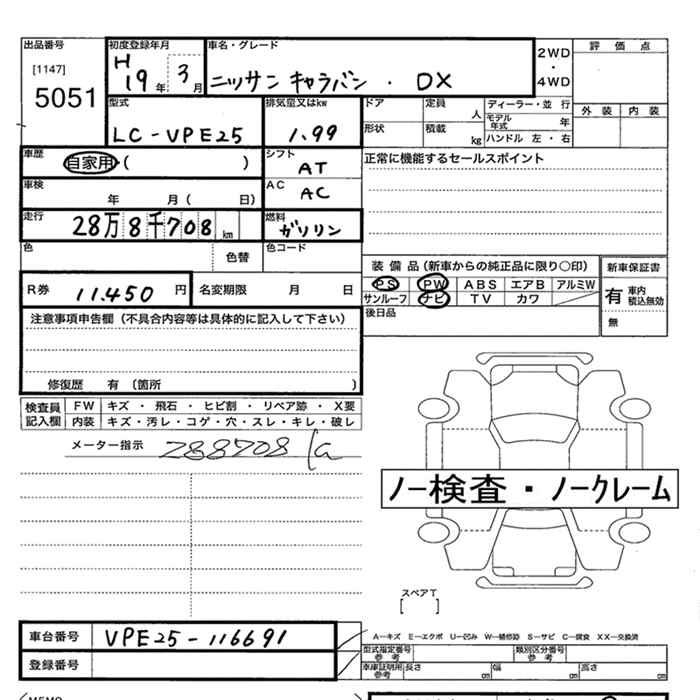 出品番号
[1147]
5051
初度登録年月
H
19年 3月
車名・グレード
ニッサン キャラバン ・ DX
2WD
・
4WD
評 価 点
外 装 内 装
型式
LC-VPE25
排気量又はkw
1.99
ドア
定員
人
ディーラー・並 行
モデル年式
年
形状
積載
kg
ハンドル 左 ・ 右
車歴
自家用 ( )
シフト
AT
正常に機能するセールスポイント
車検
年 月( 日)
AC
AC
走行
28万8千708km
燃料
ガソリン
色
色替
色コード
装 備 品 (新車からの純正品に限り○印)
新車保証書
PS PW ABS エアB アルミW
サンルーフ ナビ TV カワ
有 車内積込無効
無
R券 11.450 円
名変期限 月 日
後日品
注意事項申告欄 (不具合内容等は具体的に記入して下さい)
修復歴 有 (箇所 )
検査員記入欄
FW キズ ・ 飛石 ・ ヒビ割 ・ リペア跡 ・ X要
内装 キズ・汚レ・コゲ・穴・スレ・キレ・破レ
メーター指示 288708 K
ノー検査・ノークレーム
スペアT
[ ]
車台番号 VPE25-116691
登録番号
A―キズ E―エクボ U―凹み W―補修跡 S―サビ C―腐食 XX―交換済
型式指定番号
参 考
類別区分番号
参 考
車庫証明用
参 考
長さ cm 幅 cm 高さ cm
MEMO